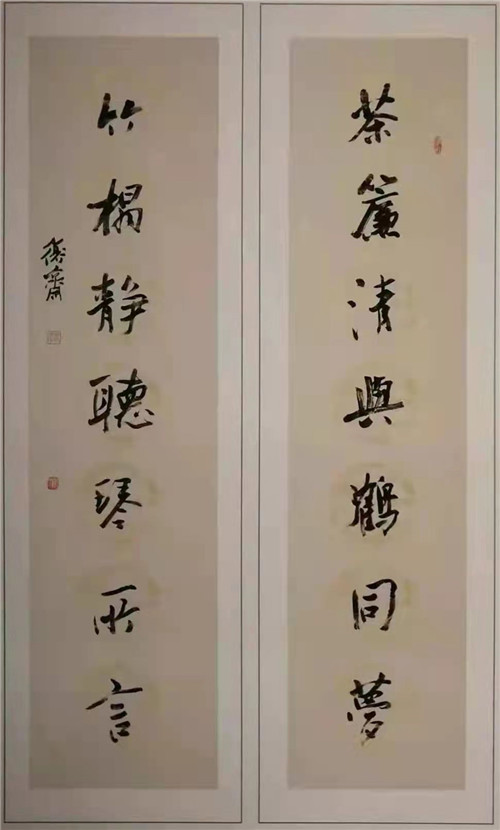 茶簾清與鶴同夢
竹榻静聽琴所言